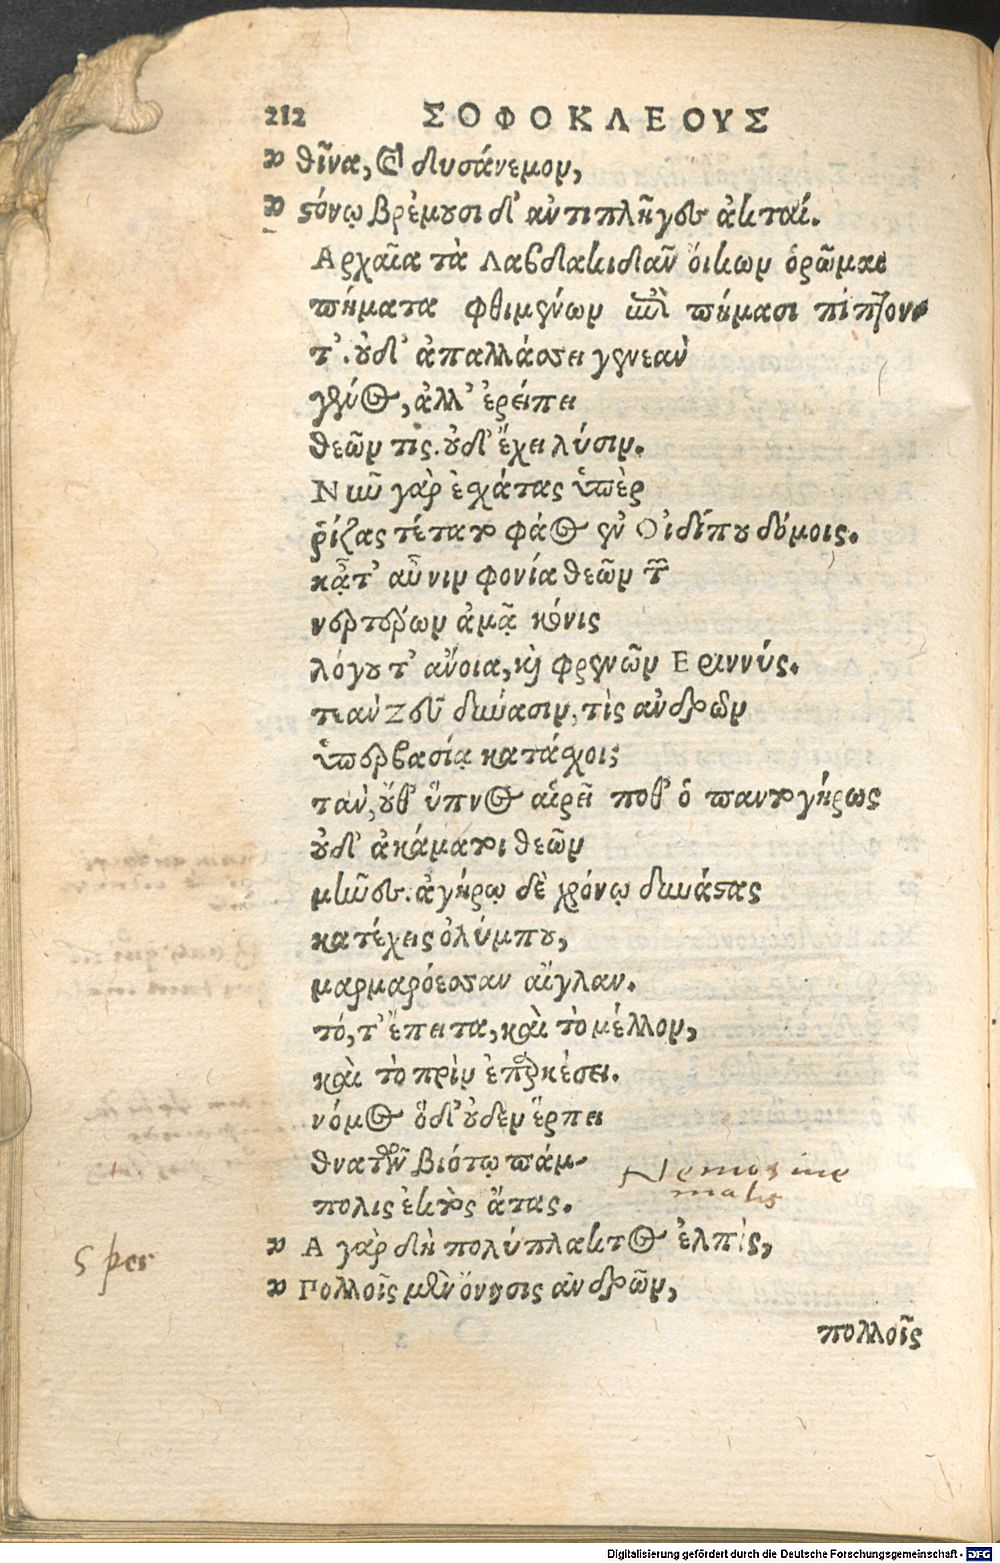 212 ΣΟΦΟΚΛΕΟΥΣ
" θῖνα, καὶ δυσάνεμον,
" στόνῳ βρέμουσι δ' ἀντιπλῆγες ἀκταί.
Αρχαῖα τὰ Λαβδακιδᾶν οἴκων ὁρῶμαι
πήματα φθιμένων ἐπὶ πήμασι πίπτοντ
τ'. οὐδ' ἀπαλλάσσει γενεὰν
γένος, ἀλλ' ἐρείπει
θεῶν τις. οὐδ' ἔχει λύσιν.
Νῦν γὰρ ἐσχάτας ὑπὲρ
ῥίζας τέτατο φάος ἐν Οἰδίπου δόμοις.
κᾆτ' αὖ νιν φονία θεῶν τῶν
νερτέρων ἀμᾷ κόνις
λόγου τ' ἄνοια, καὶ φρενῶν Εριννύς.
τεὰν Ζεῦ δύνασιν, τὶς ἀνδρῶν
ὑπερβασίᾳ κατάσχοι;
τὰν, οὔθ' ὕπνος αἱρεῖ ποθ' ὁ παντογήρως
οὐδ' ἀκάματοι θεῶν
μῆνες. ἀγήρῳ δὲ χρόνῳ δυνάστας
κατέχεις ὀλύμπου,
μαρμαρόεσσαν αἴγλαν.
τό, τ' ἔπειτα, καὶ τὸ μέλλον,
καὶ τὸ πρὶν ἐπαρκέσει.
νόμος ὅδ' οὐδεν ἕρπει
θνατῶν βιότῳ πάμ-
πολις ἐκτὸς ἄτας.
Nemo sine
malis
" Α γὰρ δὴ πολύπλακτος ἐλπὶς,
Spes
" Πολλοῖς μὲν ὄνησις ἀνδρῶν,
πολλοῖς
Digitalisierung gefördert durch die Deutsche Forschungsgemeinschaft - DFG